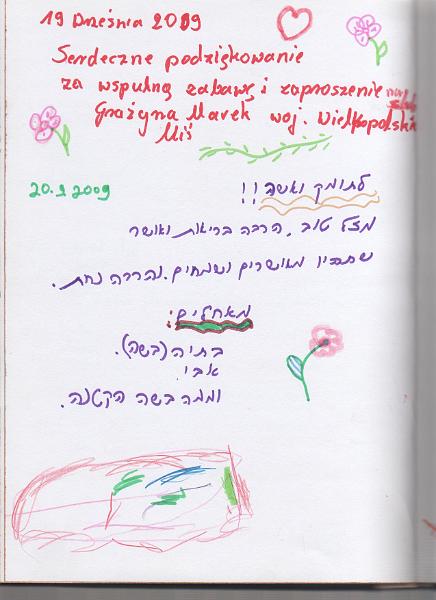 19 Września 2009
Serdeczne podziękowanie
za wspulną zabawę i zaproszenie na ślub
Grażyna Marek woj. Wielkopolskie
Miś
20.9.2009
לתומק ואשה!!
מזל טוב, הרבה בריאות ואושר
שתהיו מאושרים ושמחים. והרבה נחת.
מאחלים:
בתיה (בשה).
אבי
ומנה בשה הקטנה.